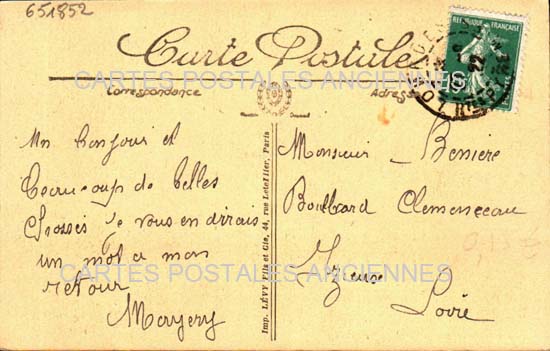 651852
Carte Postale
CARTES POSTALES ANCIENNES
REPUBLIQUE FRANÇAISE
Correspondance
Adresse
Un bonjour et
beaucoup de belles
choses je vous en dirais
un mot a mon
retour
Imp. LÉVY Fils et Cie, 44, rue Letellier, Paris
Monsieur Benière
Boulbard Clemenceau
Izieux
Loire
CARTES POSTALES ANCIENNES